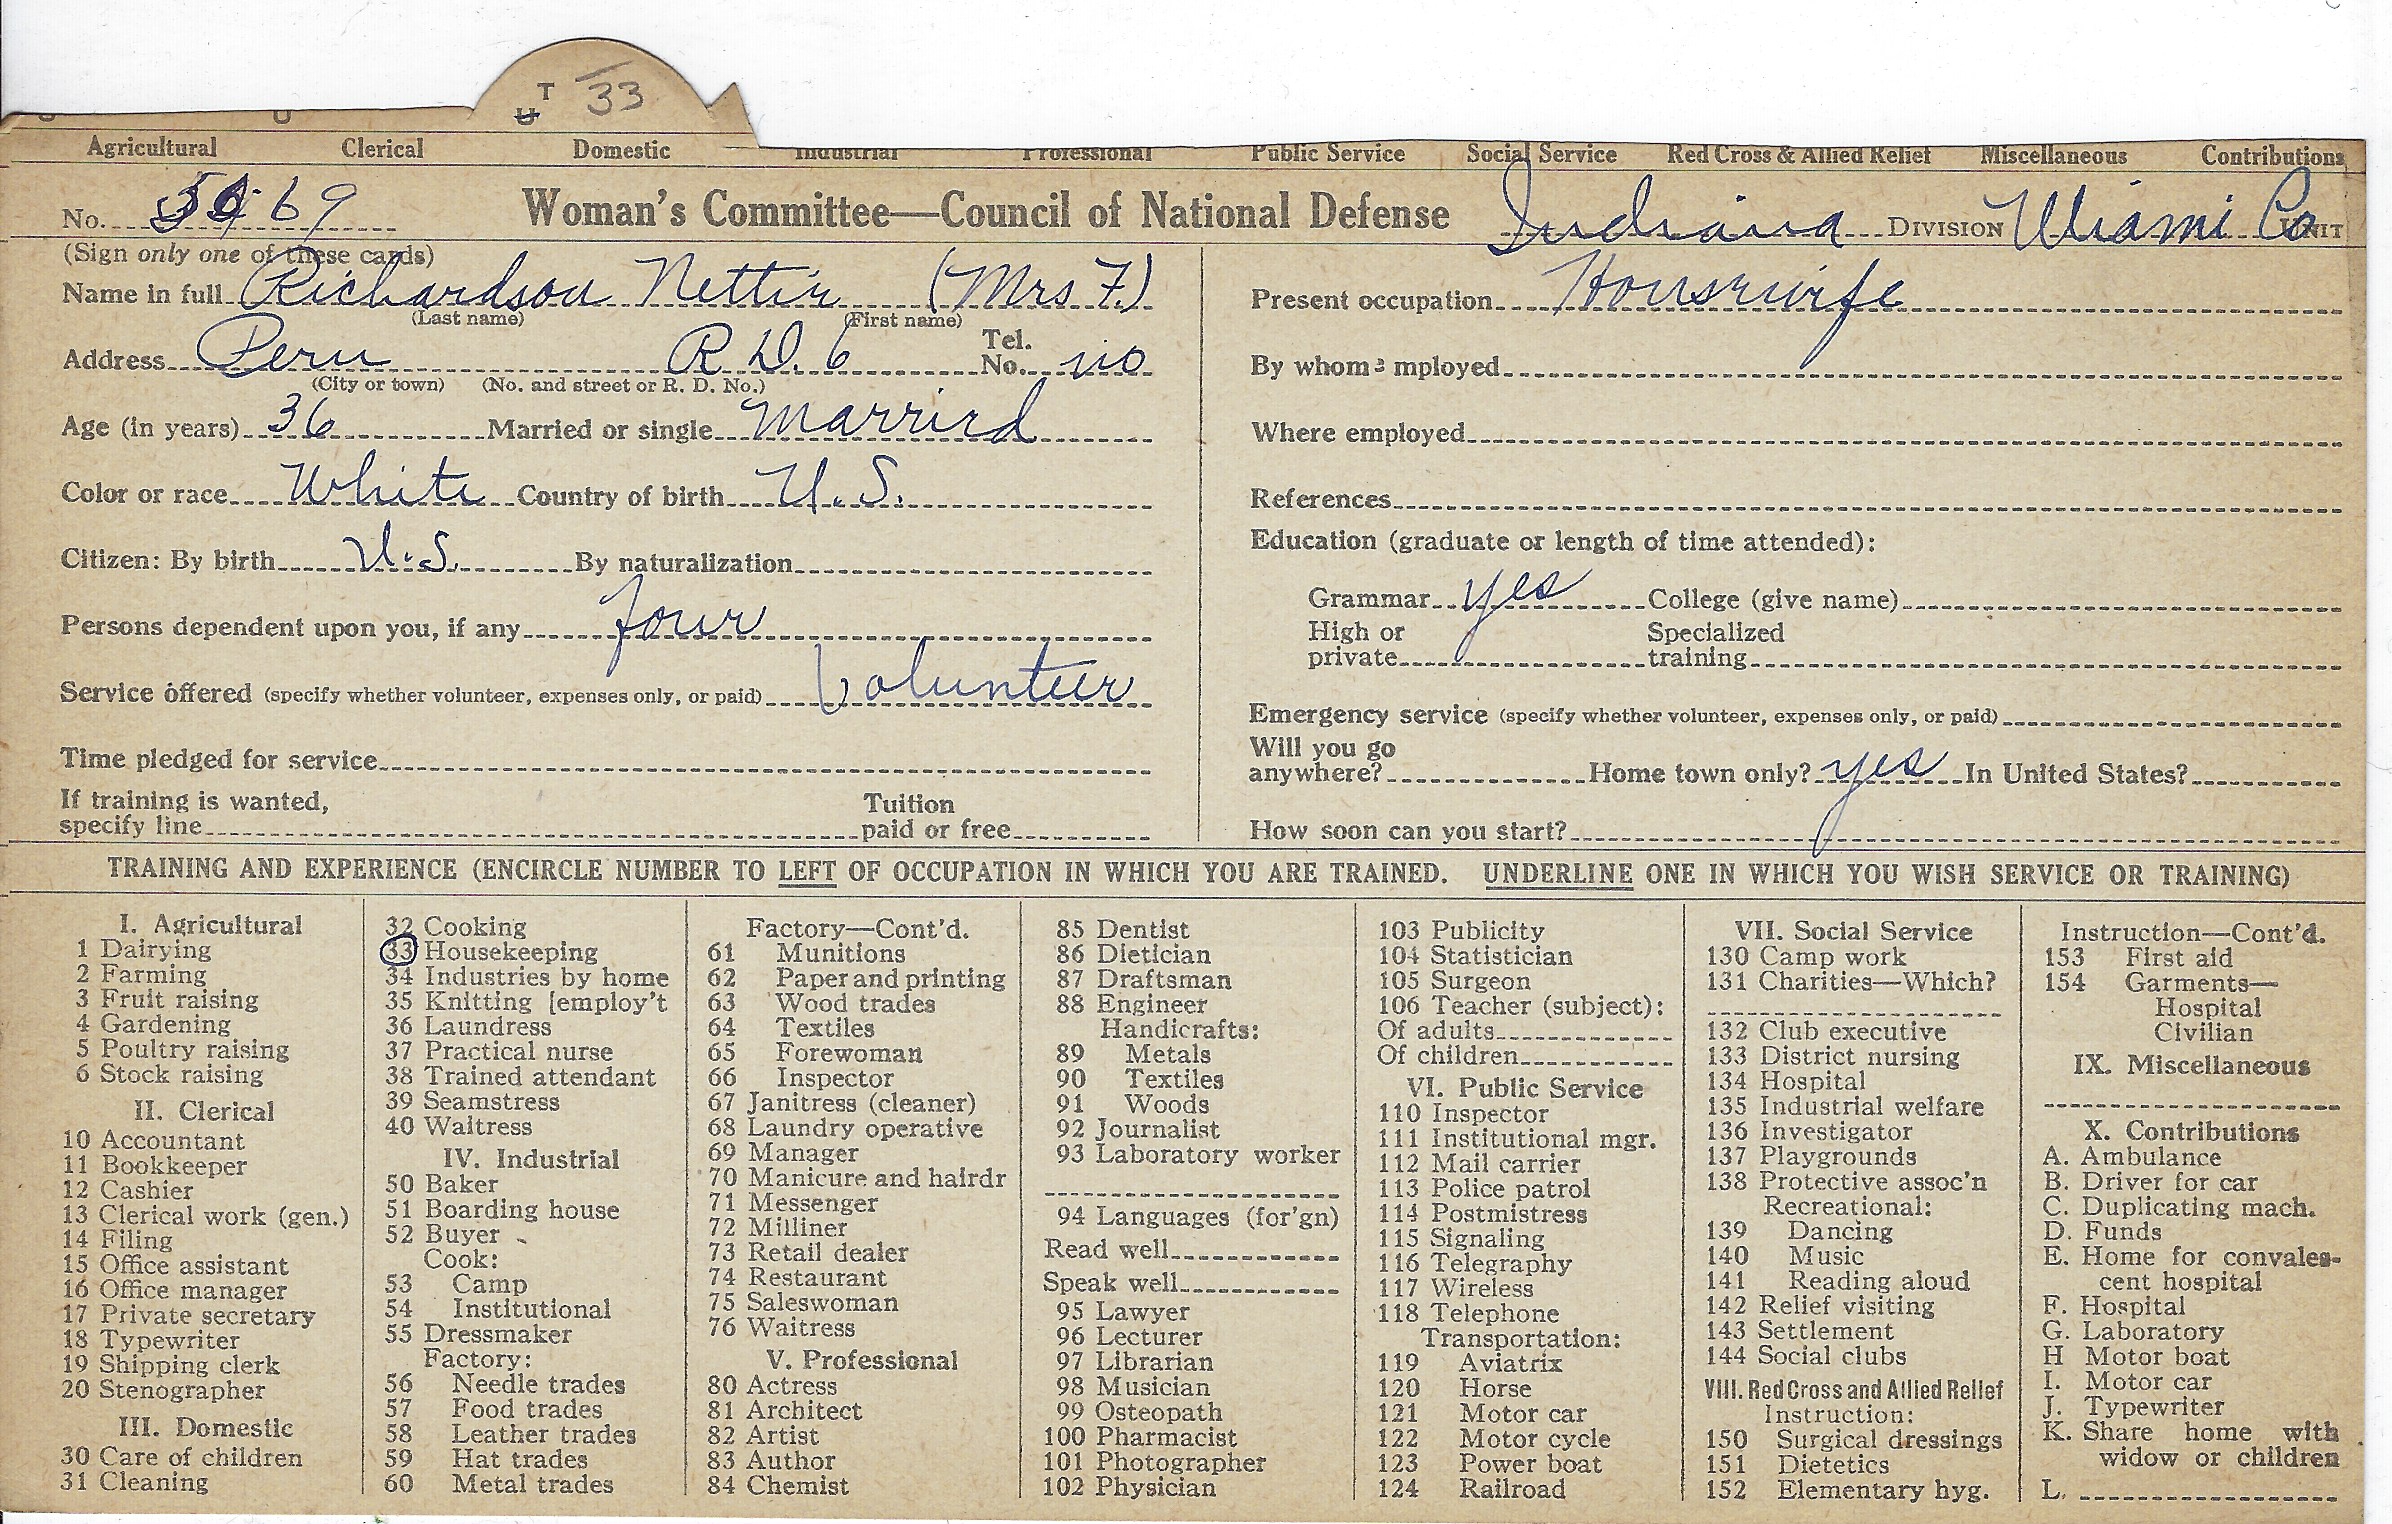 T 33
U
Agricultural Clerical Domestic Industrial Professional Public Service Social Service Red Cross & Allied Relief Miscellaneous Contributions
No. 69 Woman's Committee—Council of National Defense Indiana DIVISION Miami Co UNIT
(Sign only one of these cards)
Name in full Richardson Nettie (Mrs F.)
(Last name) (First name)
Address Peru R D. 6 Tel. No. no
(City or town) (No. and street or R. D. No.)
Age (in years) 36 Married or single Married
Color or race White Country of birth U.S.
Citizen: By birth U.S. By naturalization
Persons dependent upon you, if any four
Service offered (specify whether volunteer, expenses only, or paid) Volunteer
Time pledged for service
If training is wanted,
specify line Tuition paid or free
Present occupation Housewife
By whom employed
Where employed
References
Education (graduate or length of time attended):
Grammar yes College (give name)
High or private Specialized training
Emergency service (specify whether volunteer, expenses only, or paid)
Will you go
anywhere? Home town only? yes In United States?
How soon can you start?
TRAINING AND EXPERIENCE (ENCIRCLE NUMBER TO LEFT OF OCCUPATION IN WHICH YOU ARE TRAINED. UNDERLINE ONE IN WHICH YOU WISH SERVICE OR TRAINING)
I. Agricultural
1 Dairying
2 Farming
3 Fruit raising
4 Gardening
5 Poultry raising
6 Stock raising
II. Clerical
10 Accountant
11 Bookkeeper
12 Cashier
13 Clerical work (gen.)
14 Filing
15 Office assistant
16 Office manager
17 Private secretary
18 Typewriter
19 Shipping clerk
20 Stenographer
III. Domestic
30 Care of children
31 Cleaning
32 Cooking
33 Housekeeping
34 Industries by home
35 Knitting [employ't
36 Laundress
37 Practical nurse
38 Trained attendant
39 Seamstress
40 Waitress
IV. Industrial
50 Baker
51 Boarding house
52 Buyer
Cook:
53 Camp
54 Institutional
55 Dressmaker
Factory:
56 Needle trades
57 Food trades
58 Leather trades
59 Hat trades
60 Metal trades
Factory—Cont'd.
61 Munitions
62 Paper and printing
63 Wood trades
64 Textiles
65 Forewoman
66 Inspector
67 Janitress (cleaner)
68 Laundry operative
69 Manager
70 Manicure and hairdr
71 Messenger
72 Milliner
73 Retail dealer
74 Restaurant
75 Saleswoman
76 Waitress
V. Professional
80 Actress
81 Architect
82 Artist
83 Author
84 Chemist
85 Dentist
86 Dietician
87 Draftsman
88 Engineer
Handicrafts:
89 Metals
90 Textiles
91 Woods
92 Journalist
93 Laboratory worker
94 Languages (for'gn)
Read well
Speak well
95 Lawyer
96 Lecturer
97 Librarian
98 Musician
99 Osteopath
100 Pharmacist
101 Photographer
102 Physician
103 Publicity
104 Statistician
105 Surgeon
106 Teacher (subject):
Of adults
Of children
VI. Public Service
110 Inspector
111 Institutional mgr.
112 Mail carrier
113 Police patrol
114 Postmistress
115 Signaling
116 Telegraphy
117 Wireless
118 Telephone
Transportation:
119 Aviatrix
120 Horse
121 Motor car
122 Motor cycle
123 Power boat
124 Railroad
VII. Social Service
130 Camp work
131 Charities—Which?
132 Club executive
133 District nursing
134 Hospital
135 Industrial welfare
136 Investigator
137 Playgrounds
138 Protective assoc'n
Recreational:
139 Dancing
140 Music
141 Reading aloud
142 Relief visiting
143 Settlement
144 Social clubs
VIII. Red Cross and Allied Relief
Instruction:
150 Surgical dressings
151 Dietetics
152 Elementary hyg.
Instruction—Cont'd.
153 First aid
154 Garments—
Hospital
Civilian
IX. Miscellaneous
X. Contributions
A. Ambulance
B. Driver for car
C. Duplicating mach.
D. Funds
E. Home for convales-
cent hospital
F. Hospital
G. Laboratory
H Motor boat
I. Motor car
J. Typewriter
K. Share home with
widow or children
L.